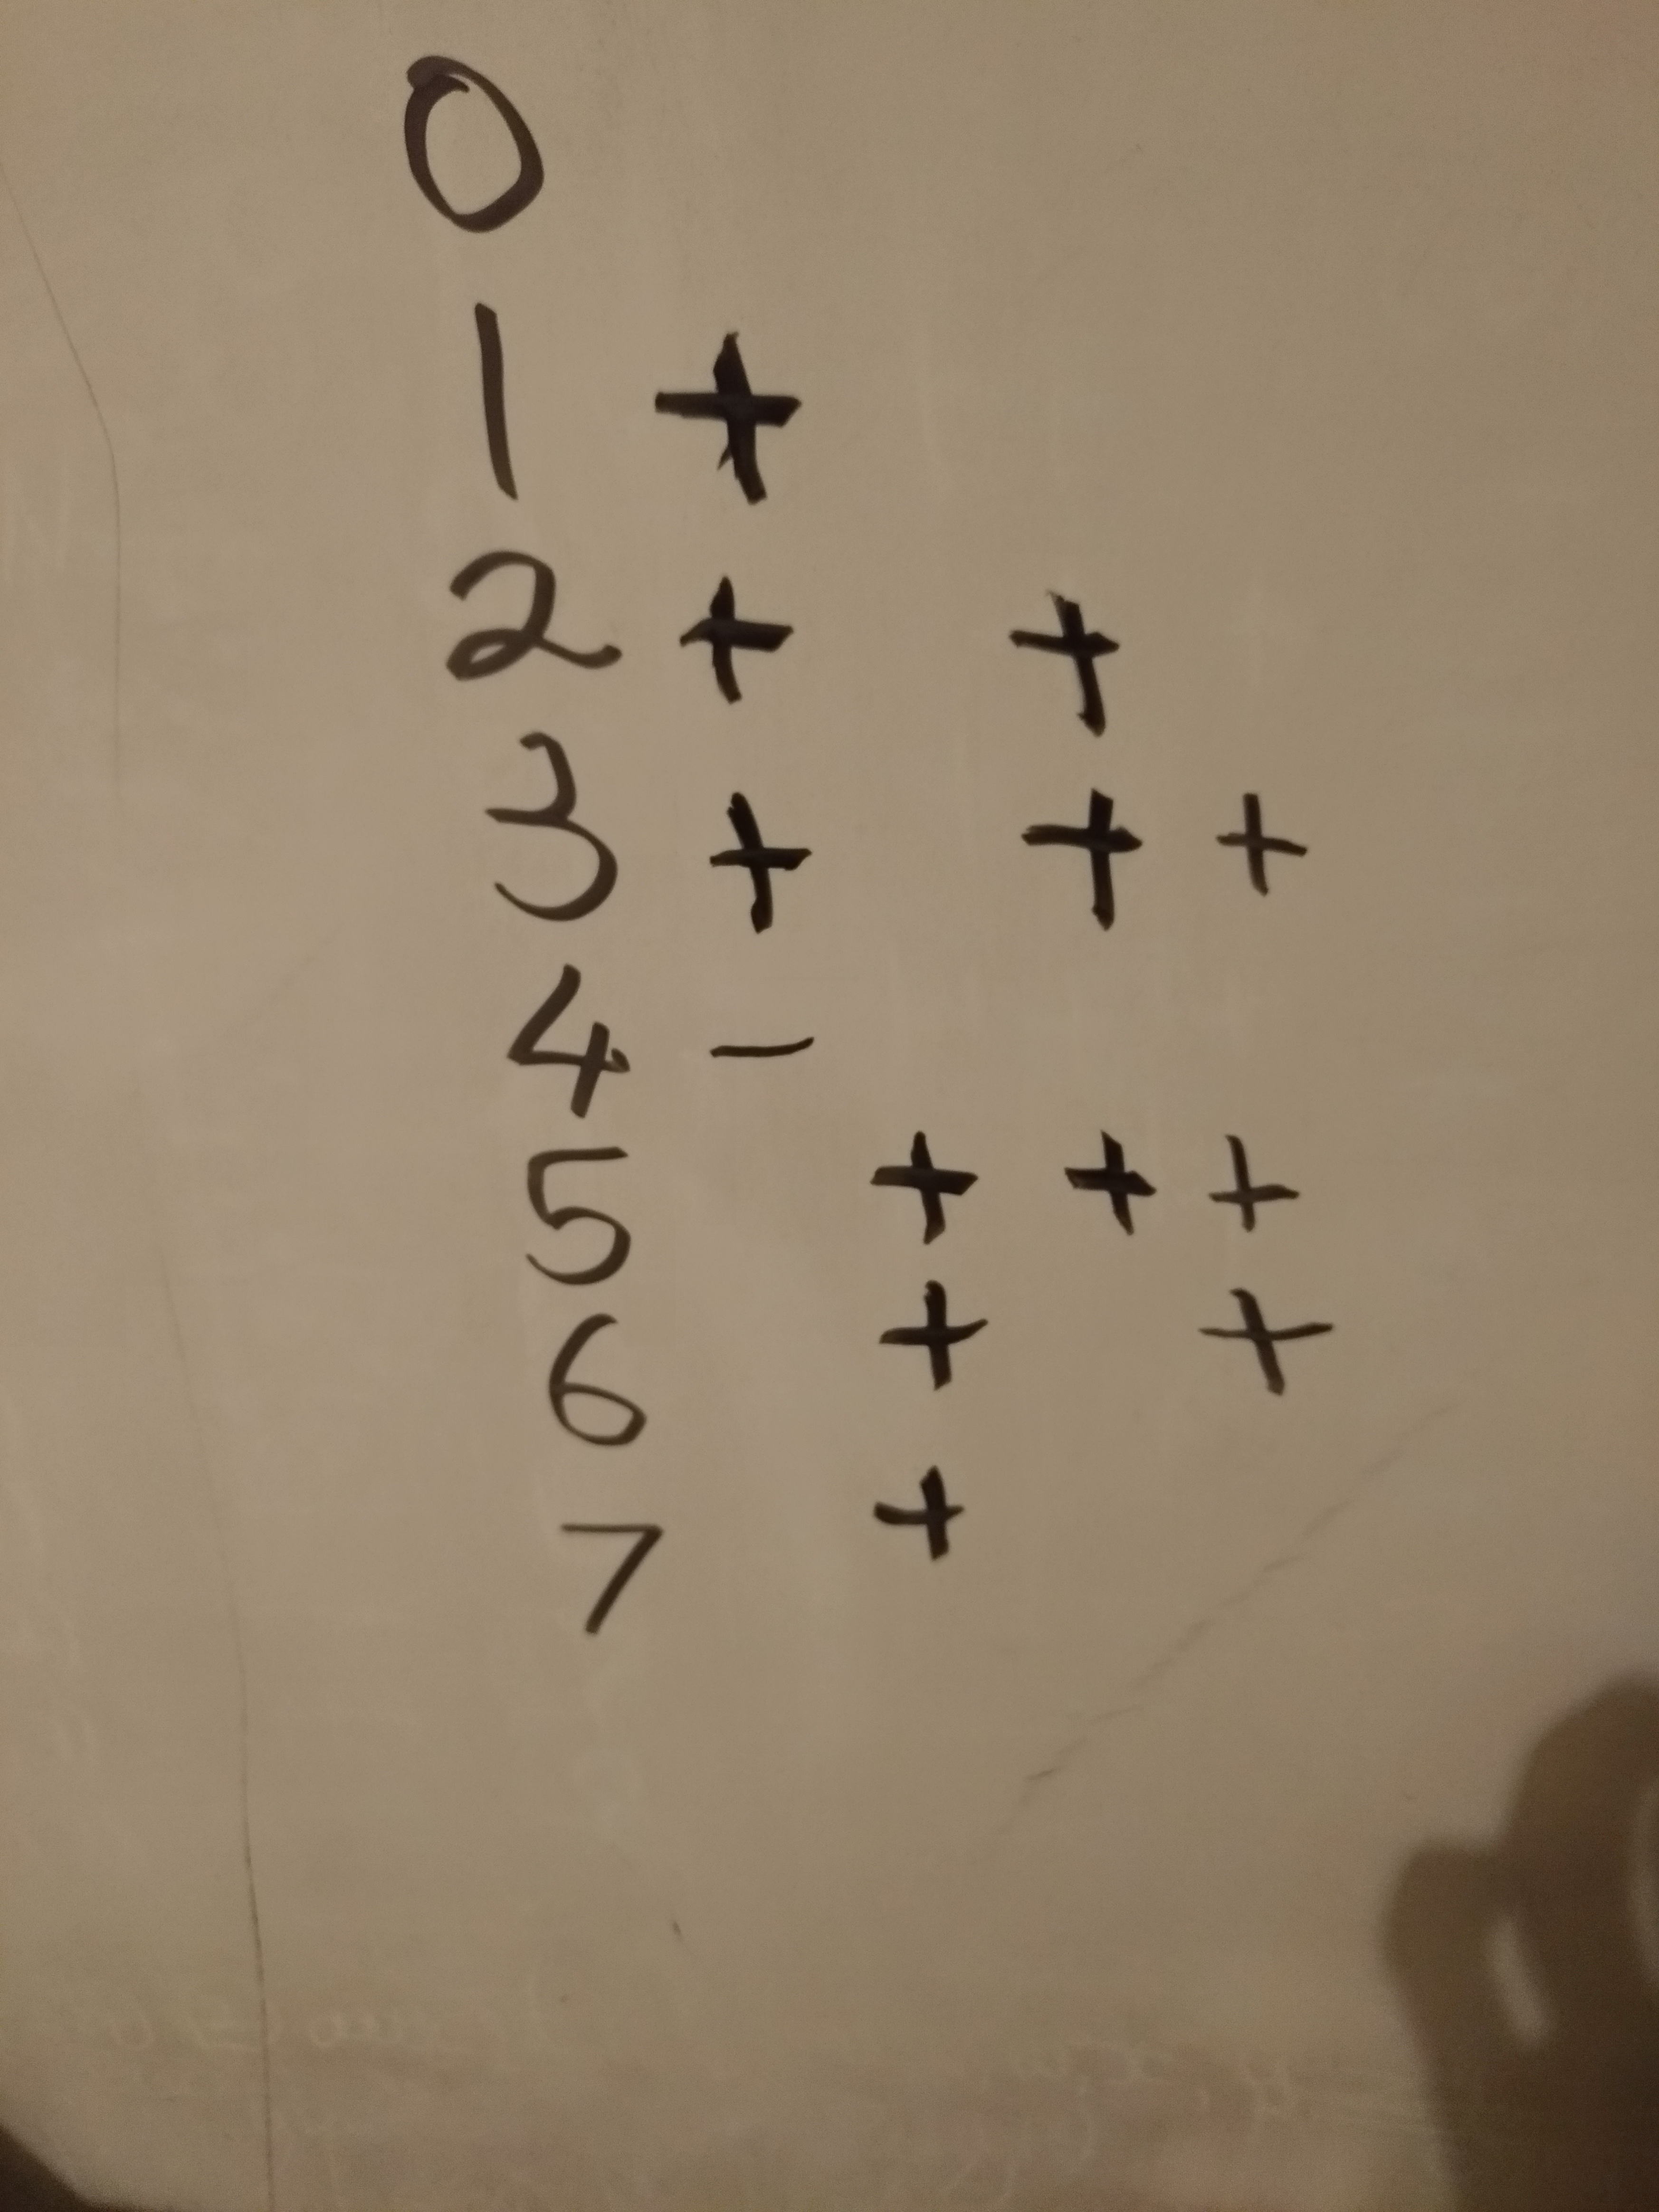 0
1 +
2 + +
3 + + +
4 -
5 + + +
6 + +
7 +